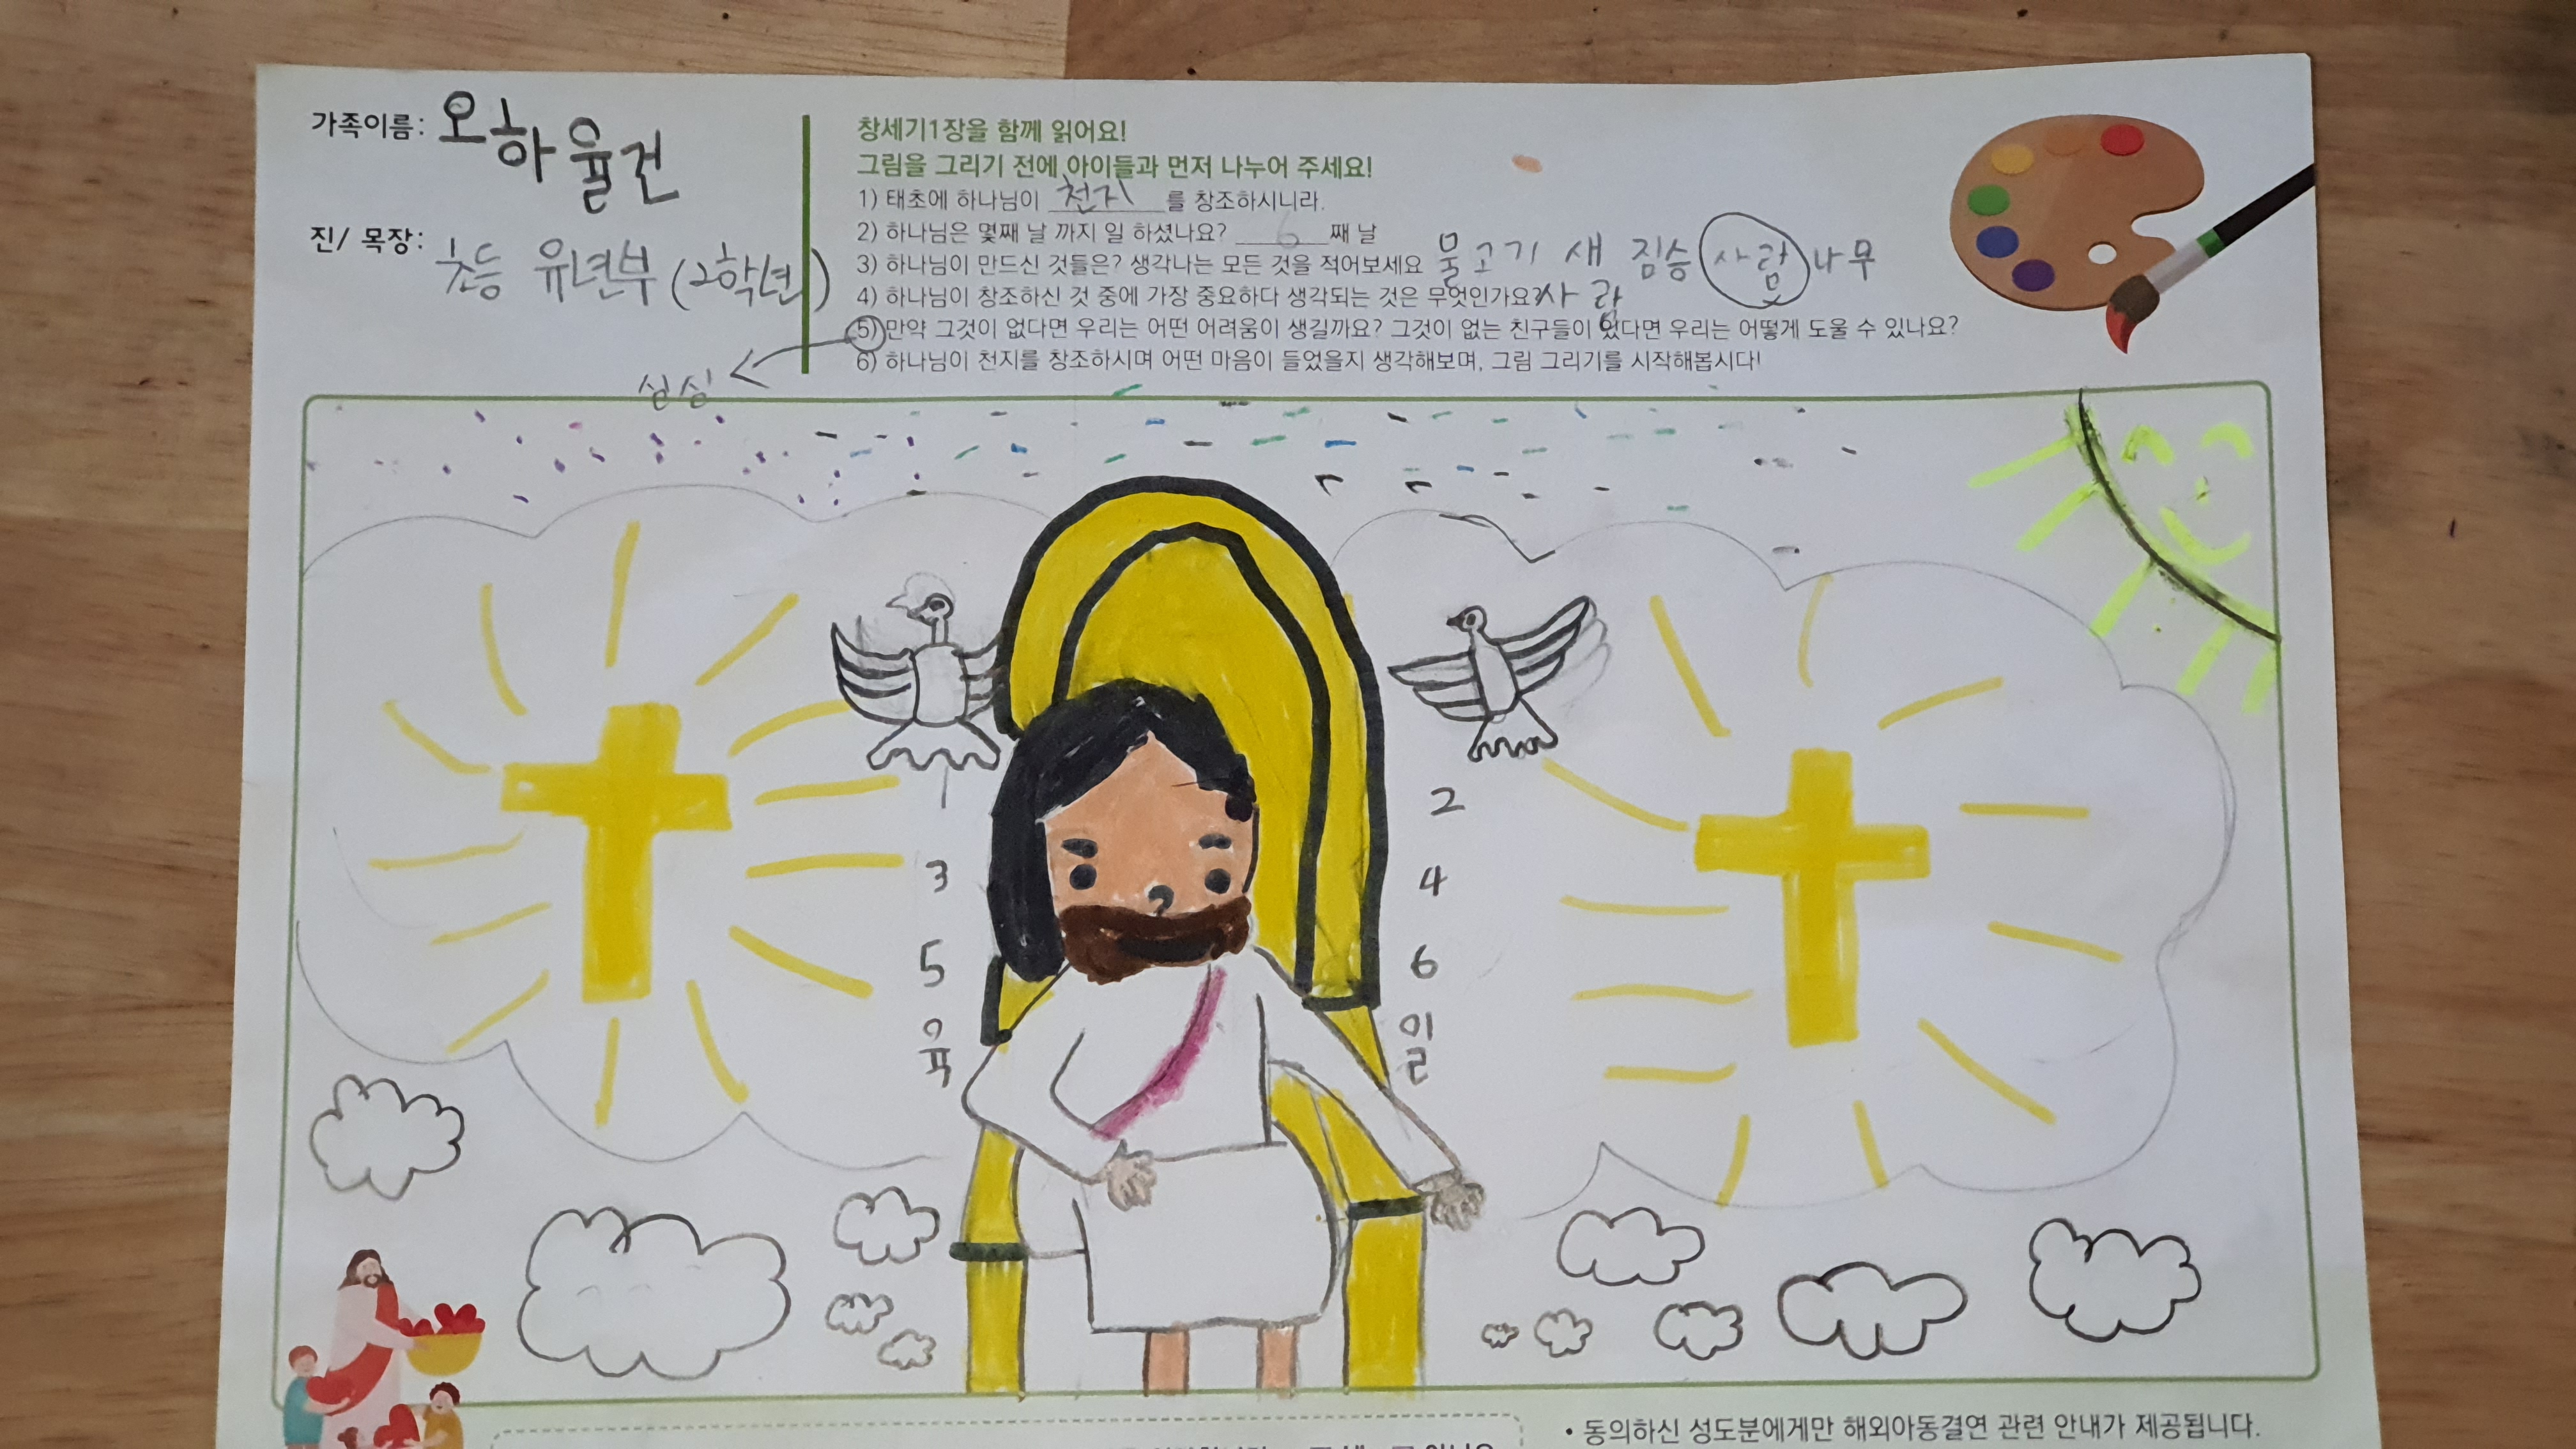 가족이름: 오하율건
진/ 목장: 초등 유년부 (2학년)
창세기1장을 함께 읽어요!
그림을 그리기 전에 아이들과 먼저 나누어 주세요!
1) 태초에 하나님이 천지 를 창조하시니라.
2) 하나님은 몇째 날 까지 일 하셨나요? 6 째 날
3) 하나님이 만드신 것들은? 생각나는 모든 것을 적어보세요 물고기 새 짐승 사람 나무
4) 하나님이 창조하신 것 중에 가장 중요하다 생각되는 것은 무엇인가요? 사람
5) 만약 그것이 없다면 우리는 어떤 어려움이 생길까요? 그것이 없는 친구들이 있다면 우리는 어떻게 도울 수 있나요?
심심
6) 하나님이 천지를 창조하시며 어떤 마음이 들었을지 생각해보며, 그림 그리기를 시작해봅시다!
1 2
3 4
5 6
육 일
• 동의하신 성도분에게만 해외아동결연 관련 안내가 제공됩니다.